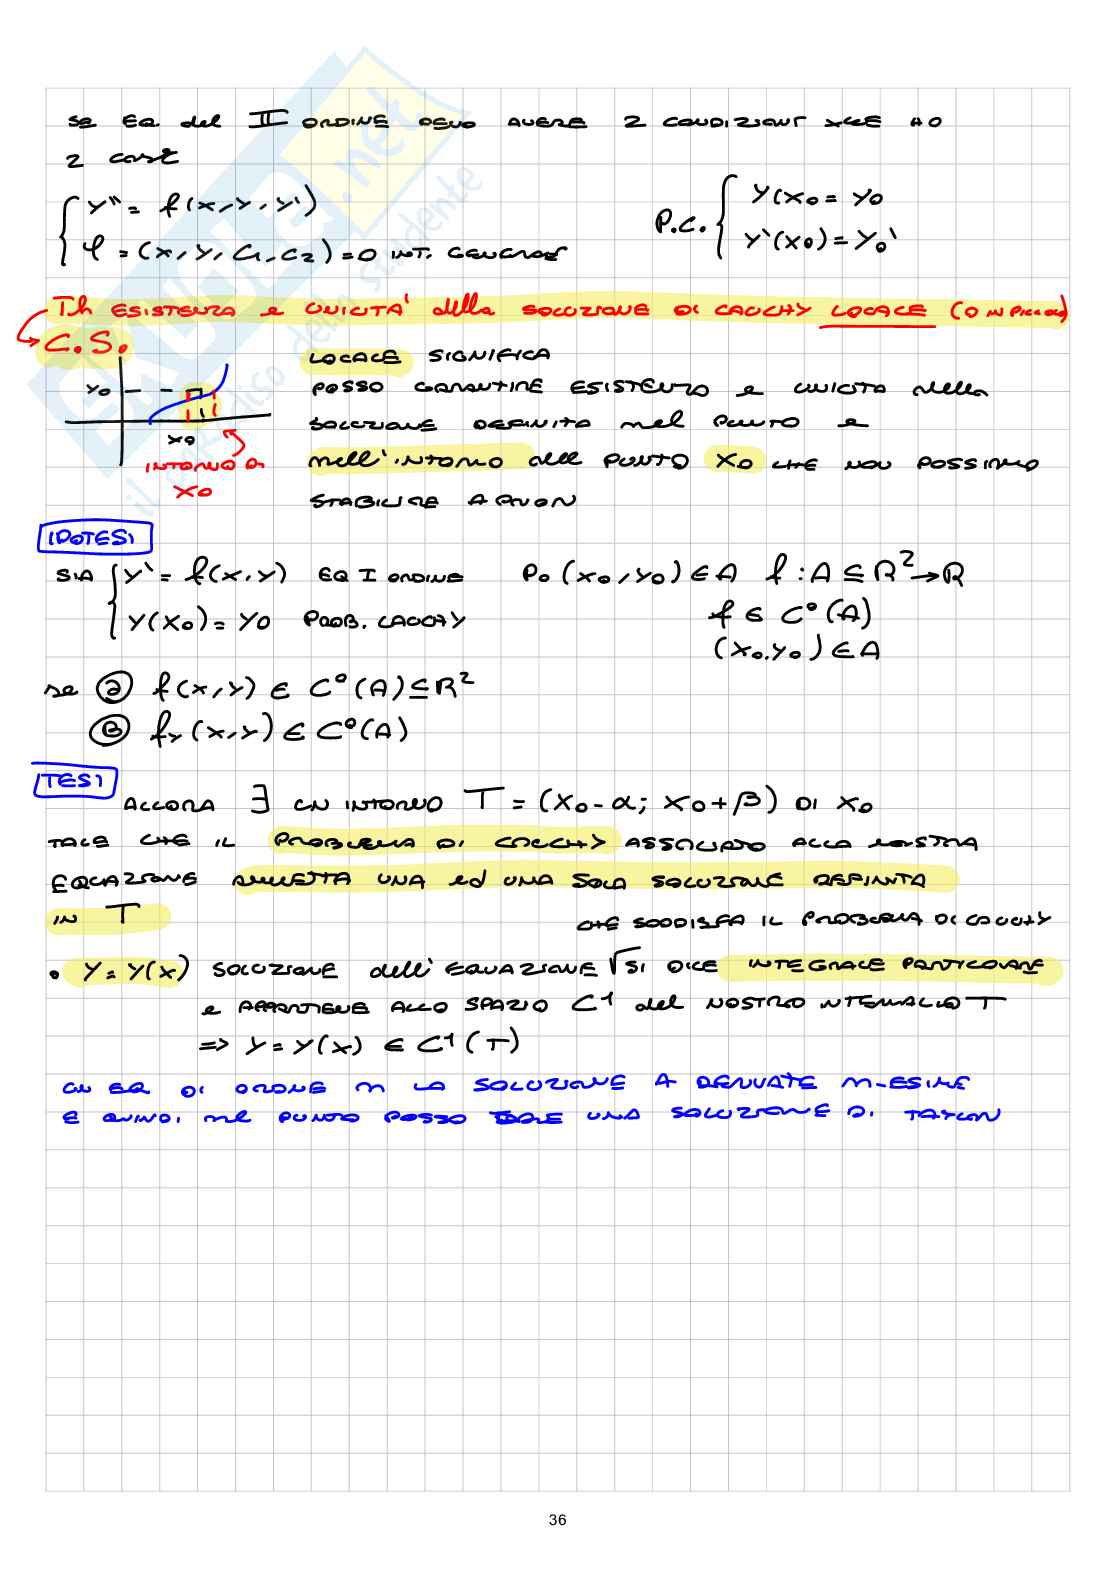 se EQ. del II ORDINE DEVO AVERE 2 CONDIZIONI XCHE HO
2 COST
{ Y'' = f(x, y, y')
φ = (x, y, C1, C2) = 0 INT. GENERALE
P.C. { Y(X0 = Y0
Y'(X0) = Y0'
Th ESISTENZA e UNICITA' della SOLUZIONE DI CAUCHY LOCALE (O IN PICCOLO)
C.S.
Y0
X0
INTORNO DI
X0
LOCALE SIGNIFICA
POSSO GARANTIRE ESISTENZA e UNICITA della
SOLUZIONE DEFINITA nel PUNTO e
nell'INTORNO dell PUNTO X0 CHE NON POSSIAMO
STABILIRE A PRIORI
IPOTESI
SIA { Y' = f(x, y) EQ I ORDINE P0 (x0, y0) ∈ A f : A ⊆ R² → R
Y(X0) = Y0 PROB. CAUCHY f ∈ C°(A)
(x0, y0) ∈ A
se ⓐ f(x, y) ∈ C°(A) ⊆ R²
Ⓑ fy (x, y) ∈ C°(A)
TESI
ALLORA ∃ UN INTORNO T = (X0 - α; X0 + β) DI X0
TALE CHE IL PROBLEMA DI CAUCHY ASSOCIATO ALLA NOSTRA
EQUAZIONE AMMETTA UNA ed UNA SOLA SOLUZIONE DEFINITA
IN T CHE SODDISFA IL PROBLEMA DI CAUCHY
• Y = Y(X) SOLUZIONE dell'EQUAZIONE √ SI DICE INTEGRALE PARTICOLARE
e APPARTIENE ALLO SPAZIO C¹ del NOSTRO INTERVALLO T
=> Y = Y(X) ∈ C¹(T)
UN EQ DI ORDINE n LA SOLUZIONE A DERIVATE n-ESIME
E QUINDI nel PUNTO POSSO UNA SOLUZIONE DI TAYLOR
36